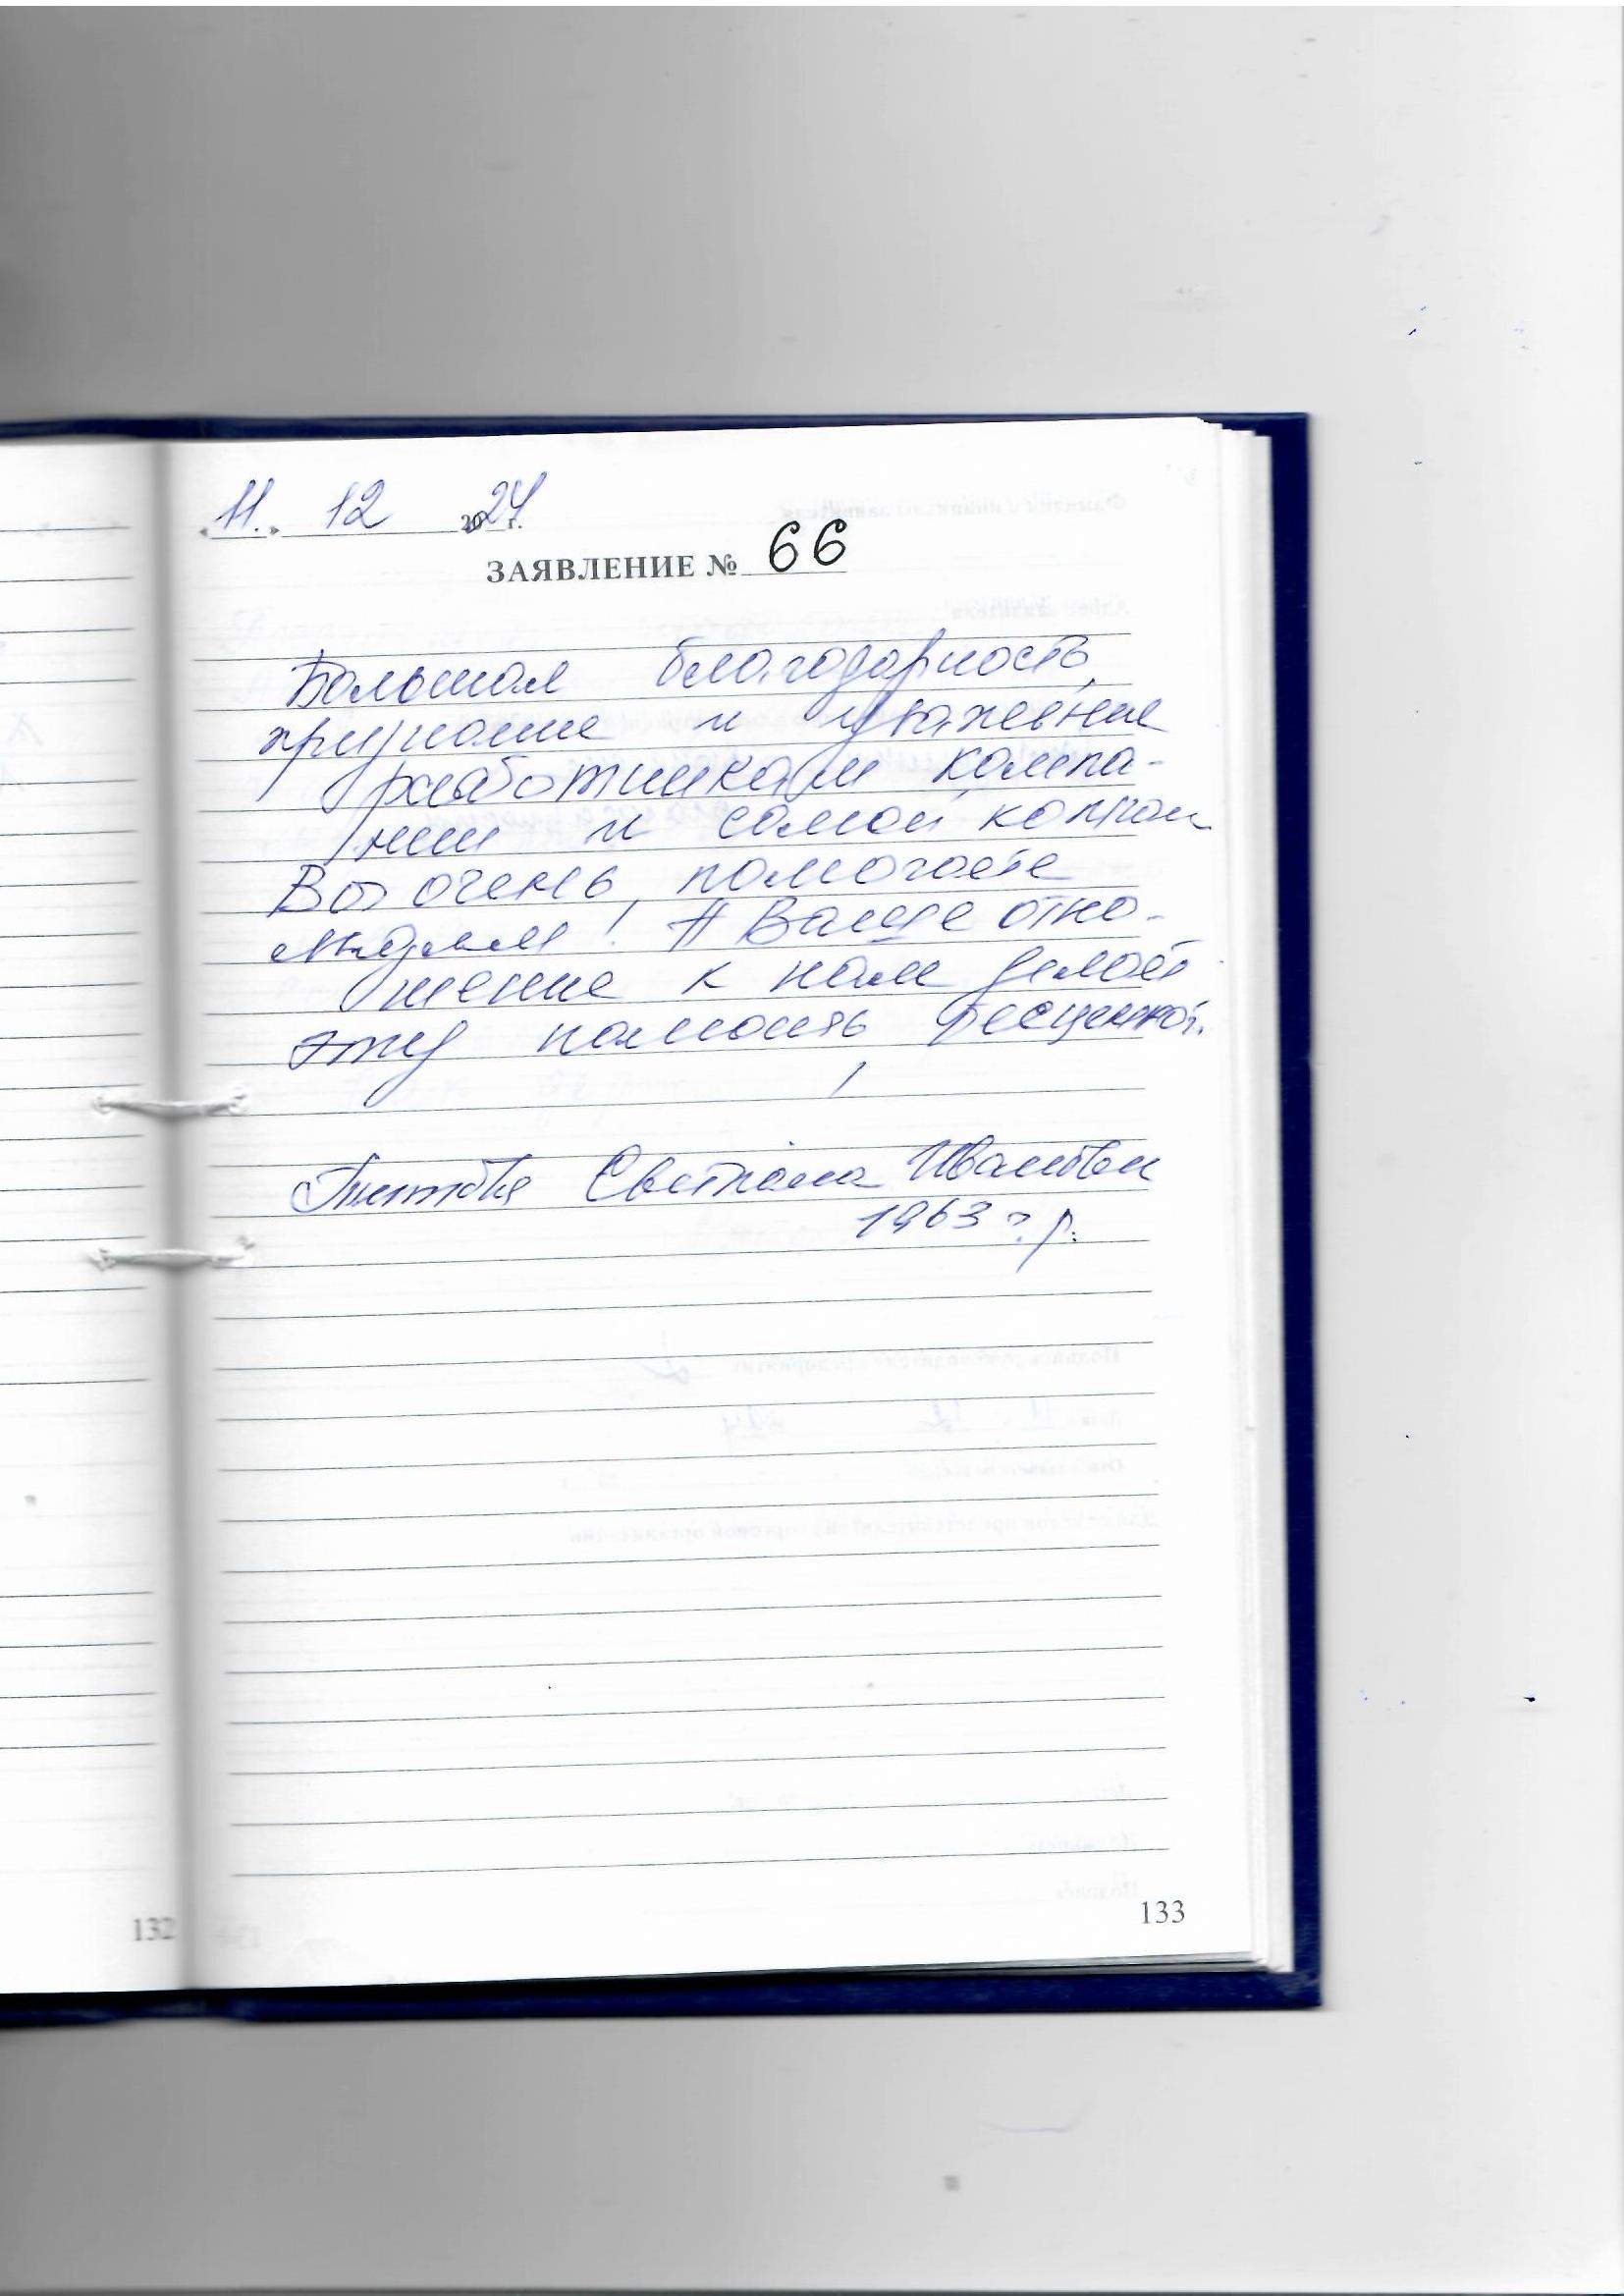 «11.» 12 2024 г.
ЗАЯВЛЕНИЕ № 66
Большая благодарность,
признание и уважение
работникам компа-
нии и самой компан
Вы очень помогаете
людям! А Ваше отно-
шение к нам делает
эту помощь бесценной.
!
Светлана Ивановн
1963 г.р.
132
133